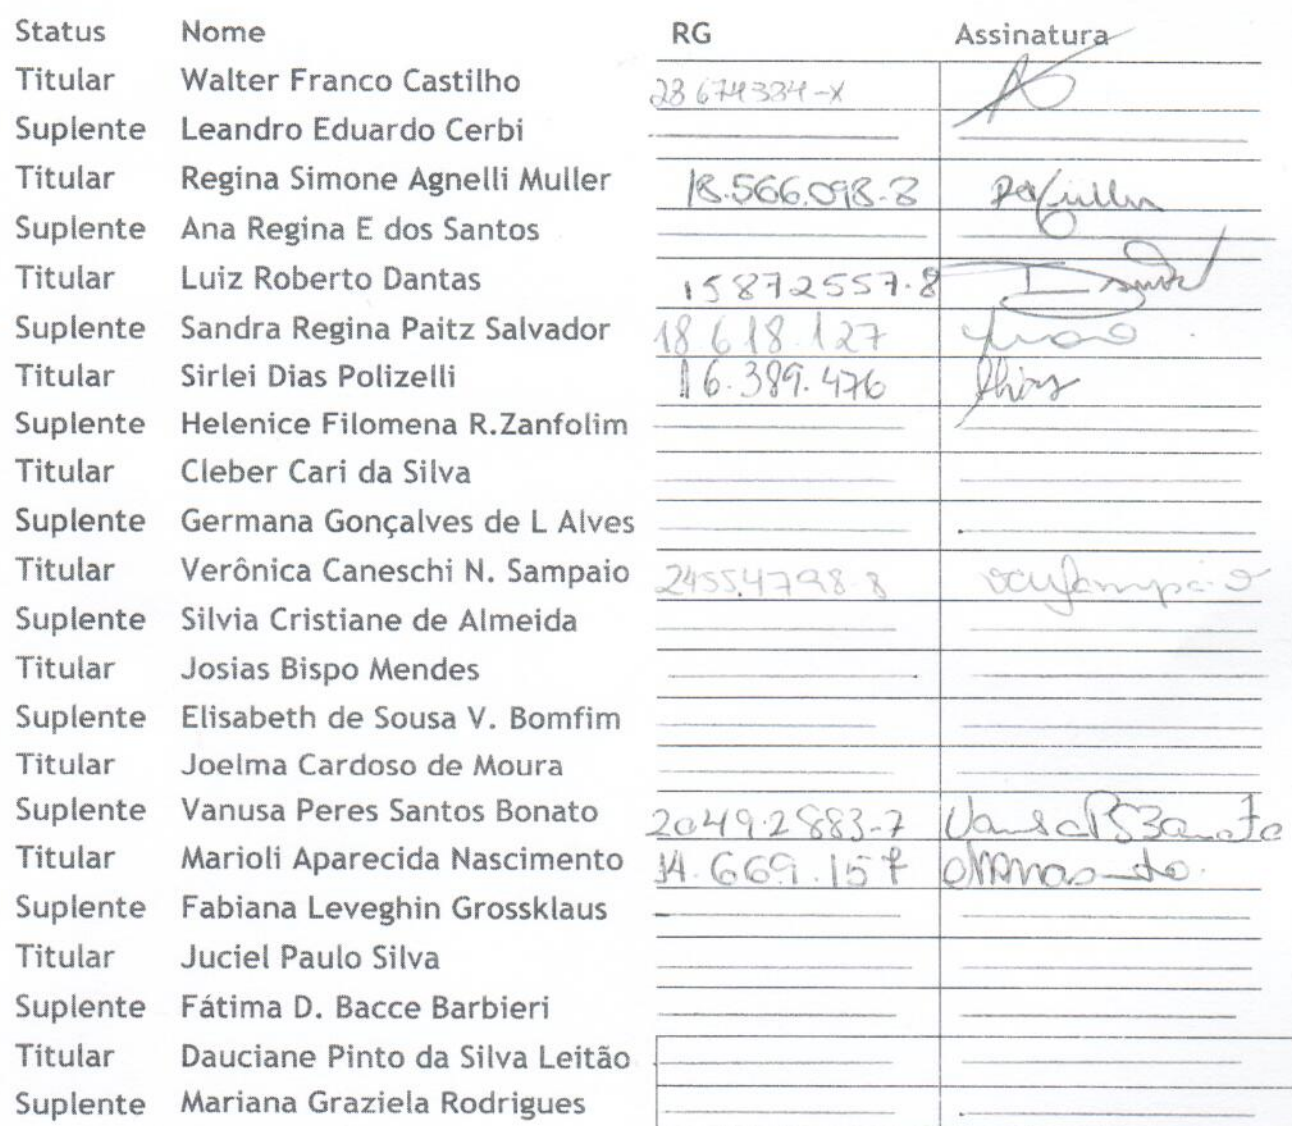 Status Nome RG Assinatura
Titular Walter Franco Castilho 28674334-X
Suplente Leandro Eduardo Cerbi
Titular Regina Simone Agnelli Muller 18.566.098-8
Suplente Ana Regina E dos Santos
Titular Luiz Roberto Dantas 15872557-8
Suplente Sandra Regina Paitz Salvador 18.618.127
Titular Sirlei Dias Polizelli 16.389.476
Suplente Helenice Filomena R.Zanfolim
Titular Cleber Cari da Silva
Suplente Germana Gonçalves de L Alves
Titular Verônica Caneschi N. Sampaio
Suplente Silvia Cristiane de Almeida
Titular Josias Bispo Mendes
Suplente Elisabeth de Sousa V. Bomfim
Titular Joelma Cardoso de Moura
Suplente Vanusa Peres Santos Bonato 20492883-7 Vanusa PS Bonato
Titular Marioli Aparecida Nascimento 14.669.157
Suplente Fabiana Leveghin Grossklaus
Titular Juciel Paulo Silva
Suplente Fátima D. Bacce Barbieri
Titular Dauciane Pinto da Silva Leitão
Suplente Mariana Graziela Rodrigues